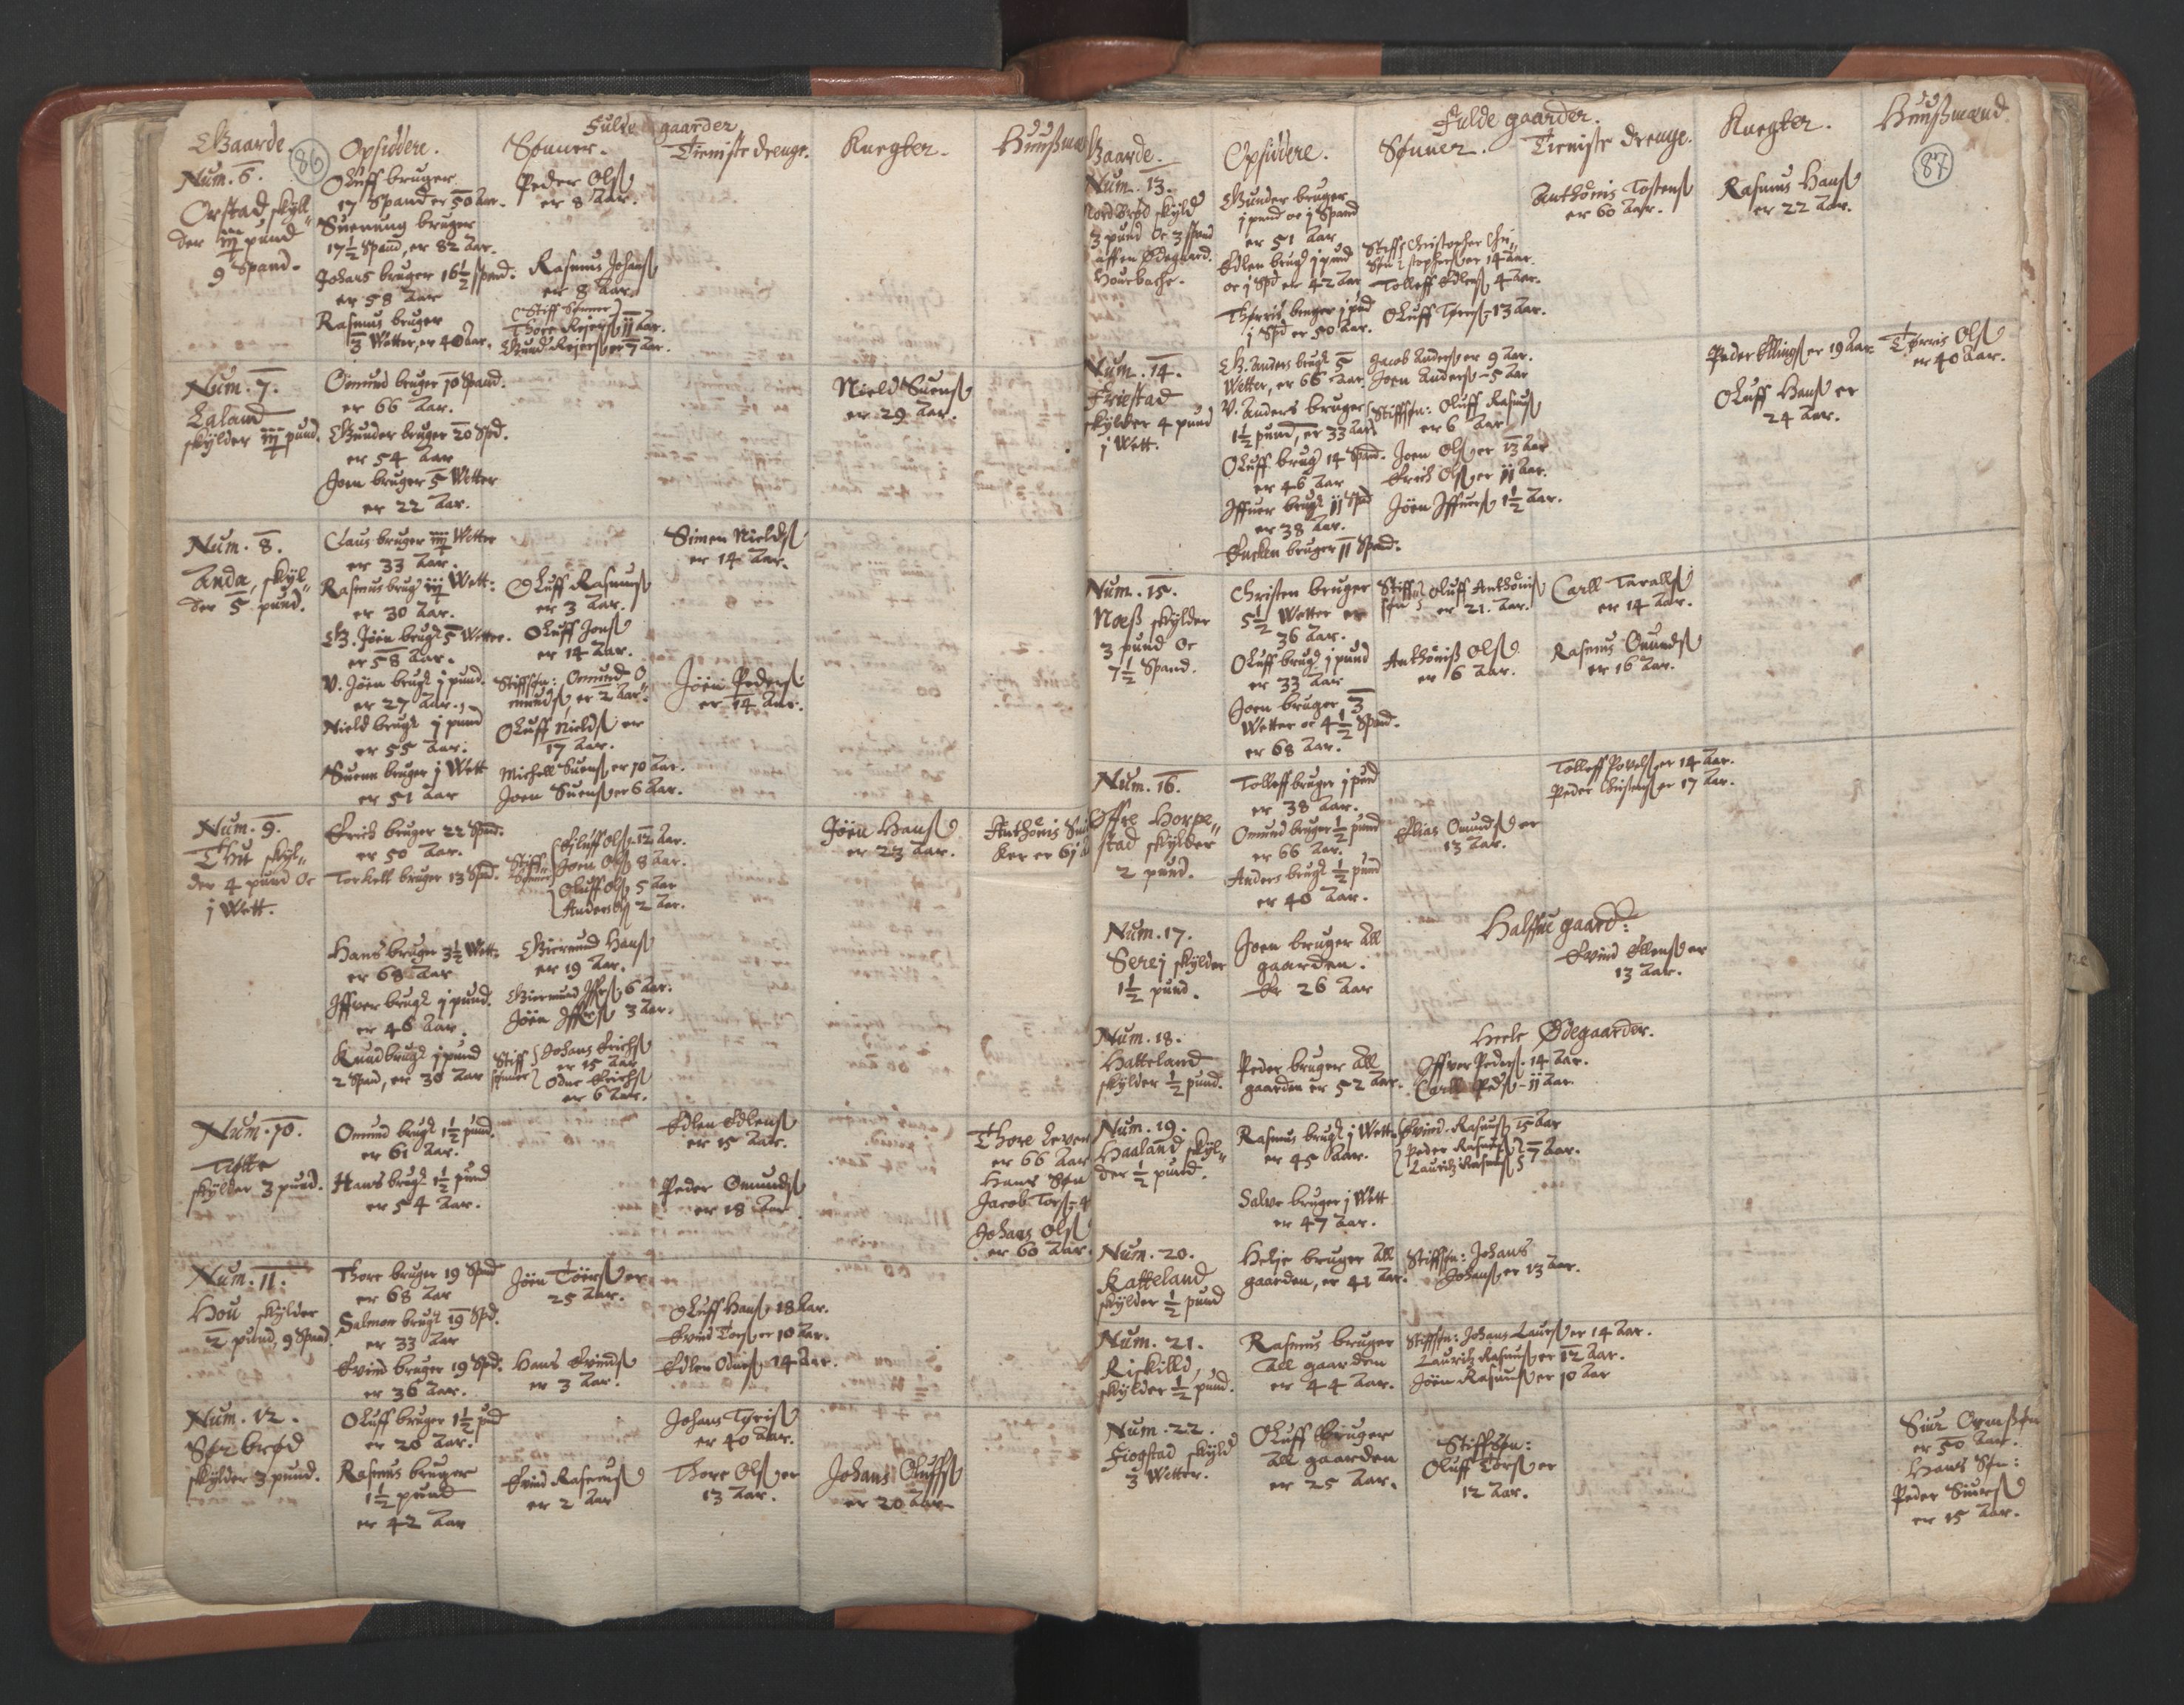 Fulde gaarder
Gaarde. Opsiddere. Sønner. Tieniste drenge. Knegter. Huußmæ
86
Num. 6.
Orstad skyll„
der iiij pund
9 Spand.
Oluff bruger
17 Spand er 50 Aar.
Suenung bruger
17½ Spand, er 82 Aar.
Johans bruger 16½ Spand.
er 58 Aar
Rasmus bruger
3 Wetter, er 40 Aar.
Peder Olß
er 8 Aar.
Rasmus Johanß
er 8 Aar.
(Stiff Sønner)
Thore Rejerß 11 Aar.
Gunder Rejerß er 7 Aar.
Num. 7.
Laland
skylder iiij pund.
Omund bruger 10 Spand.
er 66 Aar.
Gunder bruger 20 Spd.
er 54 Aar
Joen bruger 5 Wetter
er 22 Aar.
Nield Suenß
er 29 Aar.
Num. 8.
Anda, skyl„
der 5 pund.
Claus bruger iiij Wetter
er 33 Aar.
Rasmus brug iiij Wett:
er 30 Aar.
G. Jöen brug 5 Wetter.
er 58 Aar.
V. Jöen brug j pund.
er 27 Aar.
Nield brug j pund
er 55 Aar.
Suenn bruger j Wett
er 51 Aar
Oluff Rasmusß
er 3 Aar.
Oluff Jonß
er 14 Aar.
Stiffsøn: Omund O
mundß, er 2 Aar.
Oluff Nieldß er
17 Aar.
Michell Suenß er 10 Aar.
Joen Suenß er 6 Aar.
Simen Nieldß
er 14 Aar.
Jöen Pederß
er 14 Aar.
Num. 9.
Thu skyl„
der 4 pund oc
j Wett.
Erich bruger 22 Spand.
er 50 Aar.
Torkell bruger 13 Spd.
Hans bruger 3½ Wett.
er 68 Aar
Iffver brug j pund.
er 46 Aar.
Knud brug j pund
2 Spand, er 30 Aar
Stiff Sønner
Eyluff Olß 12 Aar.
Joen Olß 8 Aar.
Oluff Olß 5 Aar
Anders Olß 2 Aar.
Giermund Hanß
er 19 Aar.
Giermund Iffverß 6 Aar.
Jöen Iffverß 3 Aar.
Stiff sønner
Johans Erichß
er 15 Aar
Odne Erichß
er 6 Aar.
Jöen Hanß
er 23 Aar.
Anthonis Sni
ker er 61 A
Num. 10.
Tiøtte
skylder 3 pund.
Omund brug 1½ pund.
er 61 Aar.
Hans brug 1½ pund
er 54 Aar.
Edlen Edlenß
er 15 Aar.
Peder Omundß
er 18 Aar
Thore Leven
er 66 Aar
Hans Søn
Jacob Torß 4
Johans Olß
er 60 Aar.
Num. 11.
Hou skylder
2 pund, 9 Spand
Thore bruger 19 Spand
er 68 Aar
Salmon brug 19 Spd.
er 33 Aar
Evind bruger 19 Spd.
er 36 Aar.
Jöen Törß er
25 Aar.
Hans Evindß
er 3 Aar.
Oluff Hanß 18 Aar.
Evind Torß er 10 Aar.
Edlen Odneß 14 Aar.
Num. 12.
Sør brød
skylder 3 pund.
Oluff bruger 1½ pnd
er 20 Aar.
Rasmus bruger
1½ pund
er 42 Aar
Evind Rasmusß
er 2 Aar
Johans Tørisß
er 40 Aar.
Thore Olß er
13 Aar.
Johans Oluffß
er 20 Aar
Fulde gaarder.
Gaarde. Opsiddere. Sønner. Tieniste drenge. Knegter. Huußmænd
87
Num. 13.
Nord Brød skyld
3 pund oc 3 spand
aff en Ødegaard.
Hourbache.
Gunder bruger
j pund oc j Spand
er 51 Aar
Edlen brug j pund
oc j Spd er 42 Aar
Thørris bruger j pnd
j Spd er 50 Aar.
Stiff Søn Christopher Chri„
stophers er 14 Aar.
Tolleff Edlenß 4 Aar.
Oluff Tørisß 13 Aar.
Anthonis Tostenß
er 60 Aar.
Rasmus Hanß
er 22 Aar.
Num. 14.
Friestad
skylder 4 pund
j Wett.
G. Anders brug 5
Wetter, er 66 Aar
V. Anders bruger
1½ pund, er 33 Aar
Oluff brug 14 Spand.
er 46 Aar
Iffuer brug 11 Spd
er 38 Aar.
Encken bruger 11 Spand.
Jacob Anderß er 9 Aar.
Joen Anderß 5 Aar
Stiffsøn: Oluff Rasmusß
er 6 Aar
Joen Olß er 13 Aar
Erich Olß er 11 Aar.
Jöen Iffuerß 1½ Aar.
Peder Ellingß er 19 Aar
Oluff Hanß er
24 Aar.
Tørris Olß
er 40 Aar.
Num. 15.
Næß skylder
3 pund oc
7½ Spand.
Christen bruger
5½ Wetter er
36 Aar.
Oluff brug j pund
er 33 Aar
Joen bruger 3
Wetter oc 4½ Spand.
er 68 Aar.
Stiff søn Oluff Anthonisß
er 21. Aar.
Anthöniß Olß
er 6 Aar.
Carll Tarallß
er 14 Aar.
Rasmus Omundß
er 16 Aar.
Num. 16.
Øffre Horpe„
stad skylder
2 pund.
Tolleff bruger j pund
er 38 Aar.
Omund bruger ½ pund
er 66 Aar.
Anders brug ½ pund
er 40 Aar.
Elias Omundß er
13 Aar.
Tolleff Povelß er 14 Aar.
Peder Christenß er 17 Aar.
Halffue gaard:
Num. 17.
Serej skylder
1½ pund.
Joen bruger All
gaarden.
Er 26 Aar
Evind Ellenß er
13 Aar.
Heele Ødegaarder.
Num. 18.
Hatteland
skylder ½ pund.
Peder bruger All
gaarden er 52 Aar.
Iffver Pederß 14 Aar.
Carll Pedß 11 Aar
Num. 19.
Haaland skyl„
der ½ pund.
Rasmus brug j Wett
er 45 Aar.
Salve bruger j Wett
er 47 Aar.
Evind Rasmusß 15 Aar
Peder Rasmusß
Lauritz Rasmusß 7 Aar.
Num. 20.
Katteland
skylder ½ pund
Helje bruger All
gaarden, er 41 Aar.
Stiffsøn: Johans
Johanß er 13 Aar.
Num. 21.
Riskilld,
skylder ½ pund.
Rasmus bruger
All gaarden
er 44 Aar.
Stiffsøn: Johans Laurß er 14 Aar.
Lauritz Rasmusß er 12 Aar.
Jöen Rasmusß er 10 Aar
Num. 22.
Fiogstad skyld
3 Wetter.
Oluff bruger
All gaarden
er 25 Aar.
Stiffsøn:
Oluff Torß er
12 Aar.
Siur Ormsßøn
er 50 Aar.
Hans Søn:
Peder Siurß
er 15 Aar.